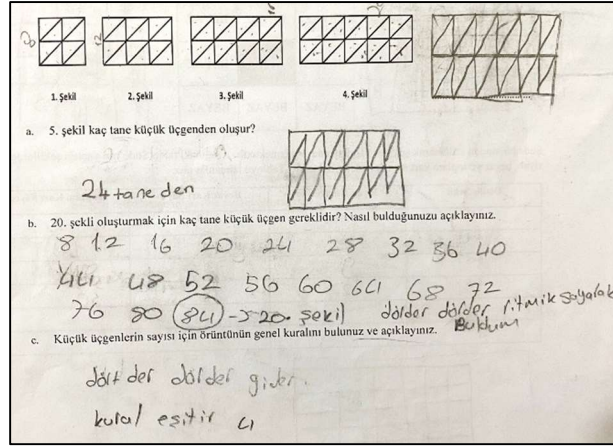 8 12 16 20
1. Şekil 2. Şekil 3. Şekil 4. Şekil
a. 5. şekil kaç tane küçük üçgenden oluşur?
24 taneden
b. 20. şekli oluşturmak için kaç tane küçük üçgen gereklidir? Nasıl bulduğunuzu açıklayınız.
8 12 16 20 24 28 32 36 40
44 48 52 56 60 64 68 72
76 80 84 -> 20. şekil dörder dörder ritmik sayarak
Buldum
c. Küçük üçgenlerin sayısı için örüntünün genel kuralını bulunuz ve açıklayınız.
dört der dörder gider.
kural eşitir 4